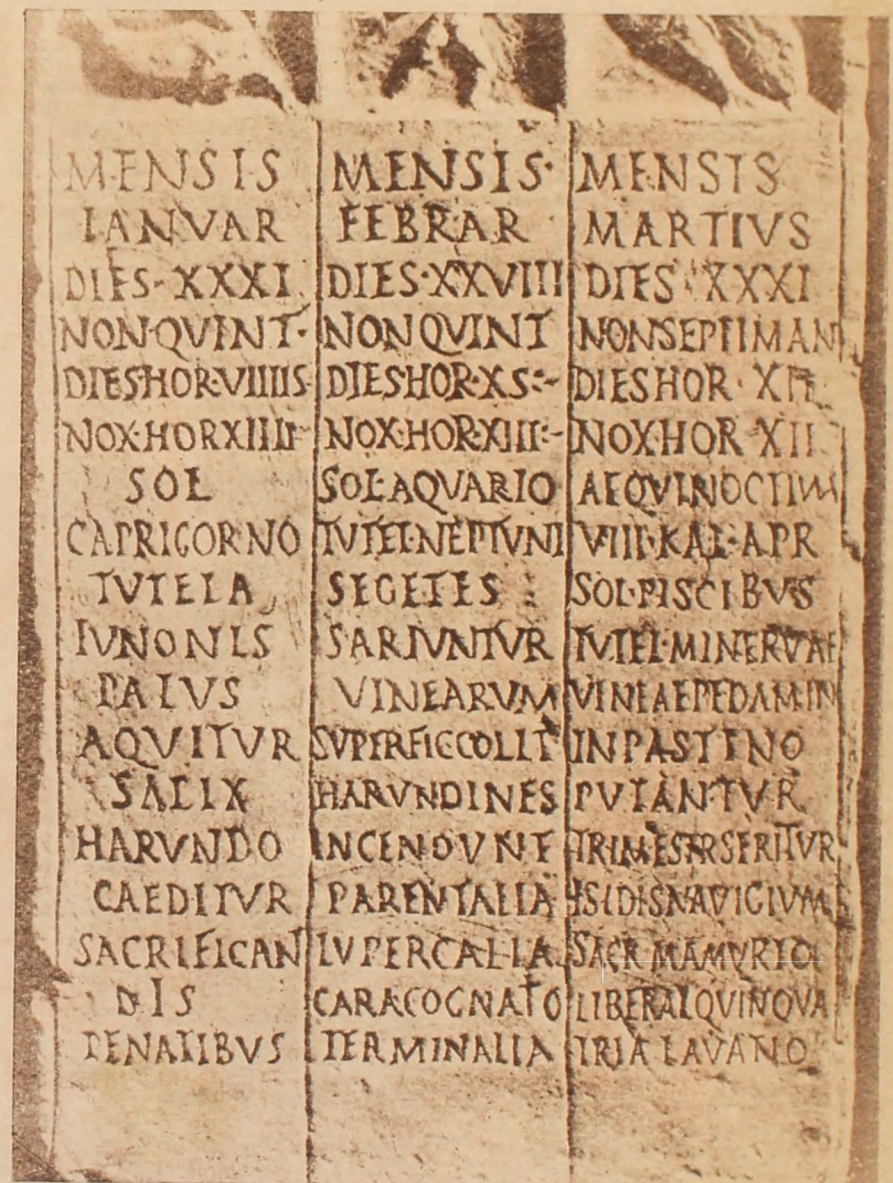 MENSIS
IANVAR
DIES·XXXI
NON·QVINT·
DIES·HOR·VIIIIS
NOX·HORXIIII
SOL
CAPRICORNO
TVTELA
IVNONIS
PALVS
AQVITVR
SALIX
HARVNDO
CAEDITVR
SACRIFICAN
DIS
PENATIBVS
MENSIS·
FEBRAR
DIES·XXVIII
NON QVINT
DIES·HOR·XS:-
NOX·HOR·XIII:-
SOL·AQVARIO
TVTEL·NEPTVNI
SEGETES
SARIVNTVR
VINEARVM
SVPERFICCOLIT
HARVNDINES
INCENDVNT
PARENTALIA
LVPERCALIA
CARACOGNATO
TERMINALIA
MENSIS
MARTIVS
DIES·XXXI
NONSEPTIMAN
DIESHOR·XII
NOX·HOR XII
AEQVINOCTIVM
VIII·KAL·APR
SOL·PISCIBVS
TVTEL·MINERVAE
VINEAEPEDAMIN
INPASTINO
PVTANTVR
TRIMESTRSERITVR
ISIDISNAVIGIVM
SACR MAMVRIO
LIBERALQVINQVA
TRIA LAVATIO